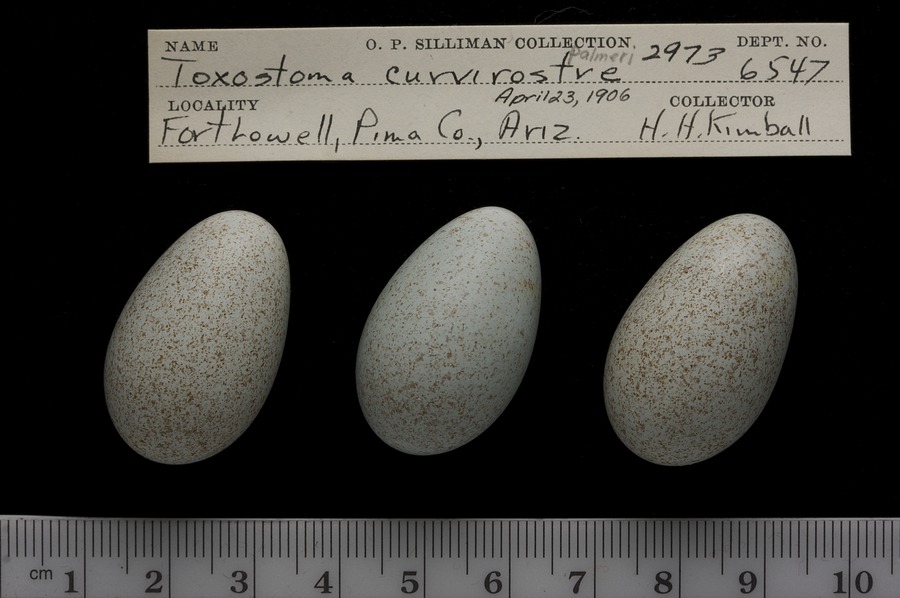 NAME O. P. SILLIMAN COLLECTION. 2973 DEPT. NO.
Toxostoma curvirostre palmeri 6547
LOCALITY April 23, 1906 COLLECTOR
Fort Lowell, Pima Co., Ariz. H. H. Kimball
cm 1 2 3 4 5 6 7 8 9 10